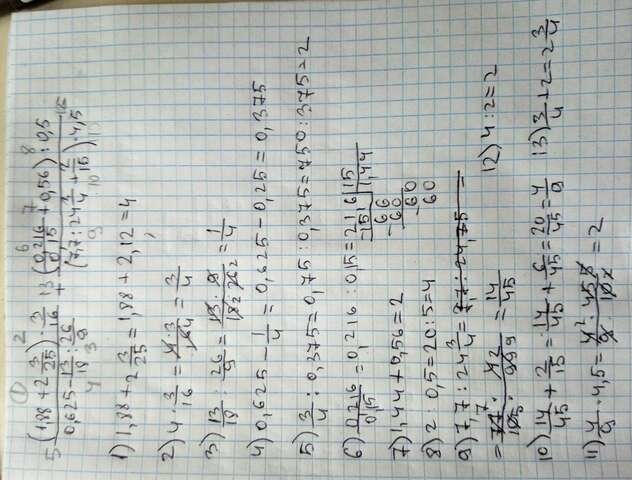 1 2 6 7 8
(1,88 + 2 3/25) · 3/16 (0,216/0,15 + 0,56) : 0,5
5 ——— + 13 ——— 12
0,625 - 13/18 : 26/9 (7,7 : 24 3/4 + 2/15) · 4,5
4 3 9 10
1) 1,88 + 2 3/25 = 1,88 + 2,12 = 4
2) 4 · 3/16 = 4·3/164 = 3/4
3) 13/18 : 26/9 = 13 · 9/182 262 = 1/4
4) 0,625 - 1/4 = 0,625 - 0,25 = 0,375
5) 3/4 : 0,375 = 0,75 : 0,375 = 750 : 375 = 2
6) 0,216/0,15 = 0,216 : 0,15 = 21,6 | 15
-15 | 1,44
-66
60
-60
60
7) 1,44 + 0,56 = 2
8) 2 : 0,5 = 20 : 5 = 4
9) 7,7 : 24 3/4 = 7,7 : 24,75 =
= 77/10 · 4/99 = 14/45
10) 14/45 + 2/15 = 14/45 + 6/45 = 20/45 = 4/9
11) 4/9 · 4,5 = 4 · 45/9 · 10 = 2
12) 4 : 2 = 2
13) 3/4 + 2 = 2 3/4